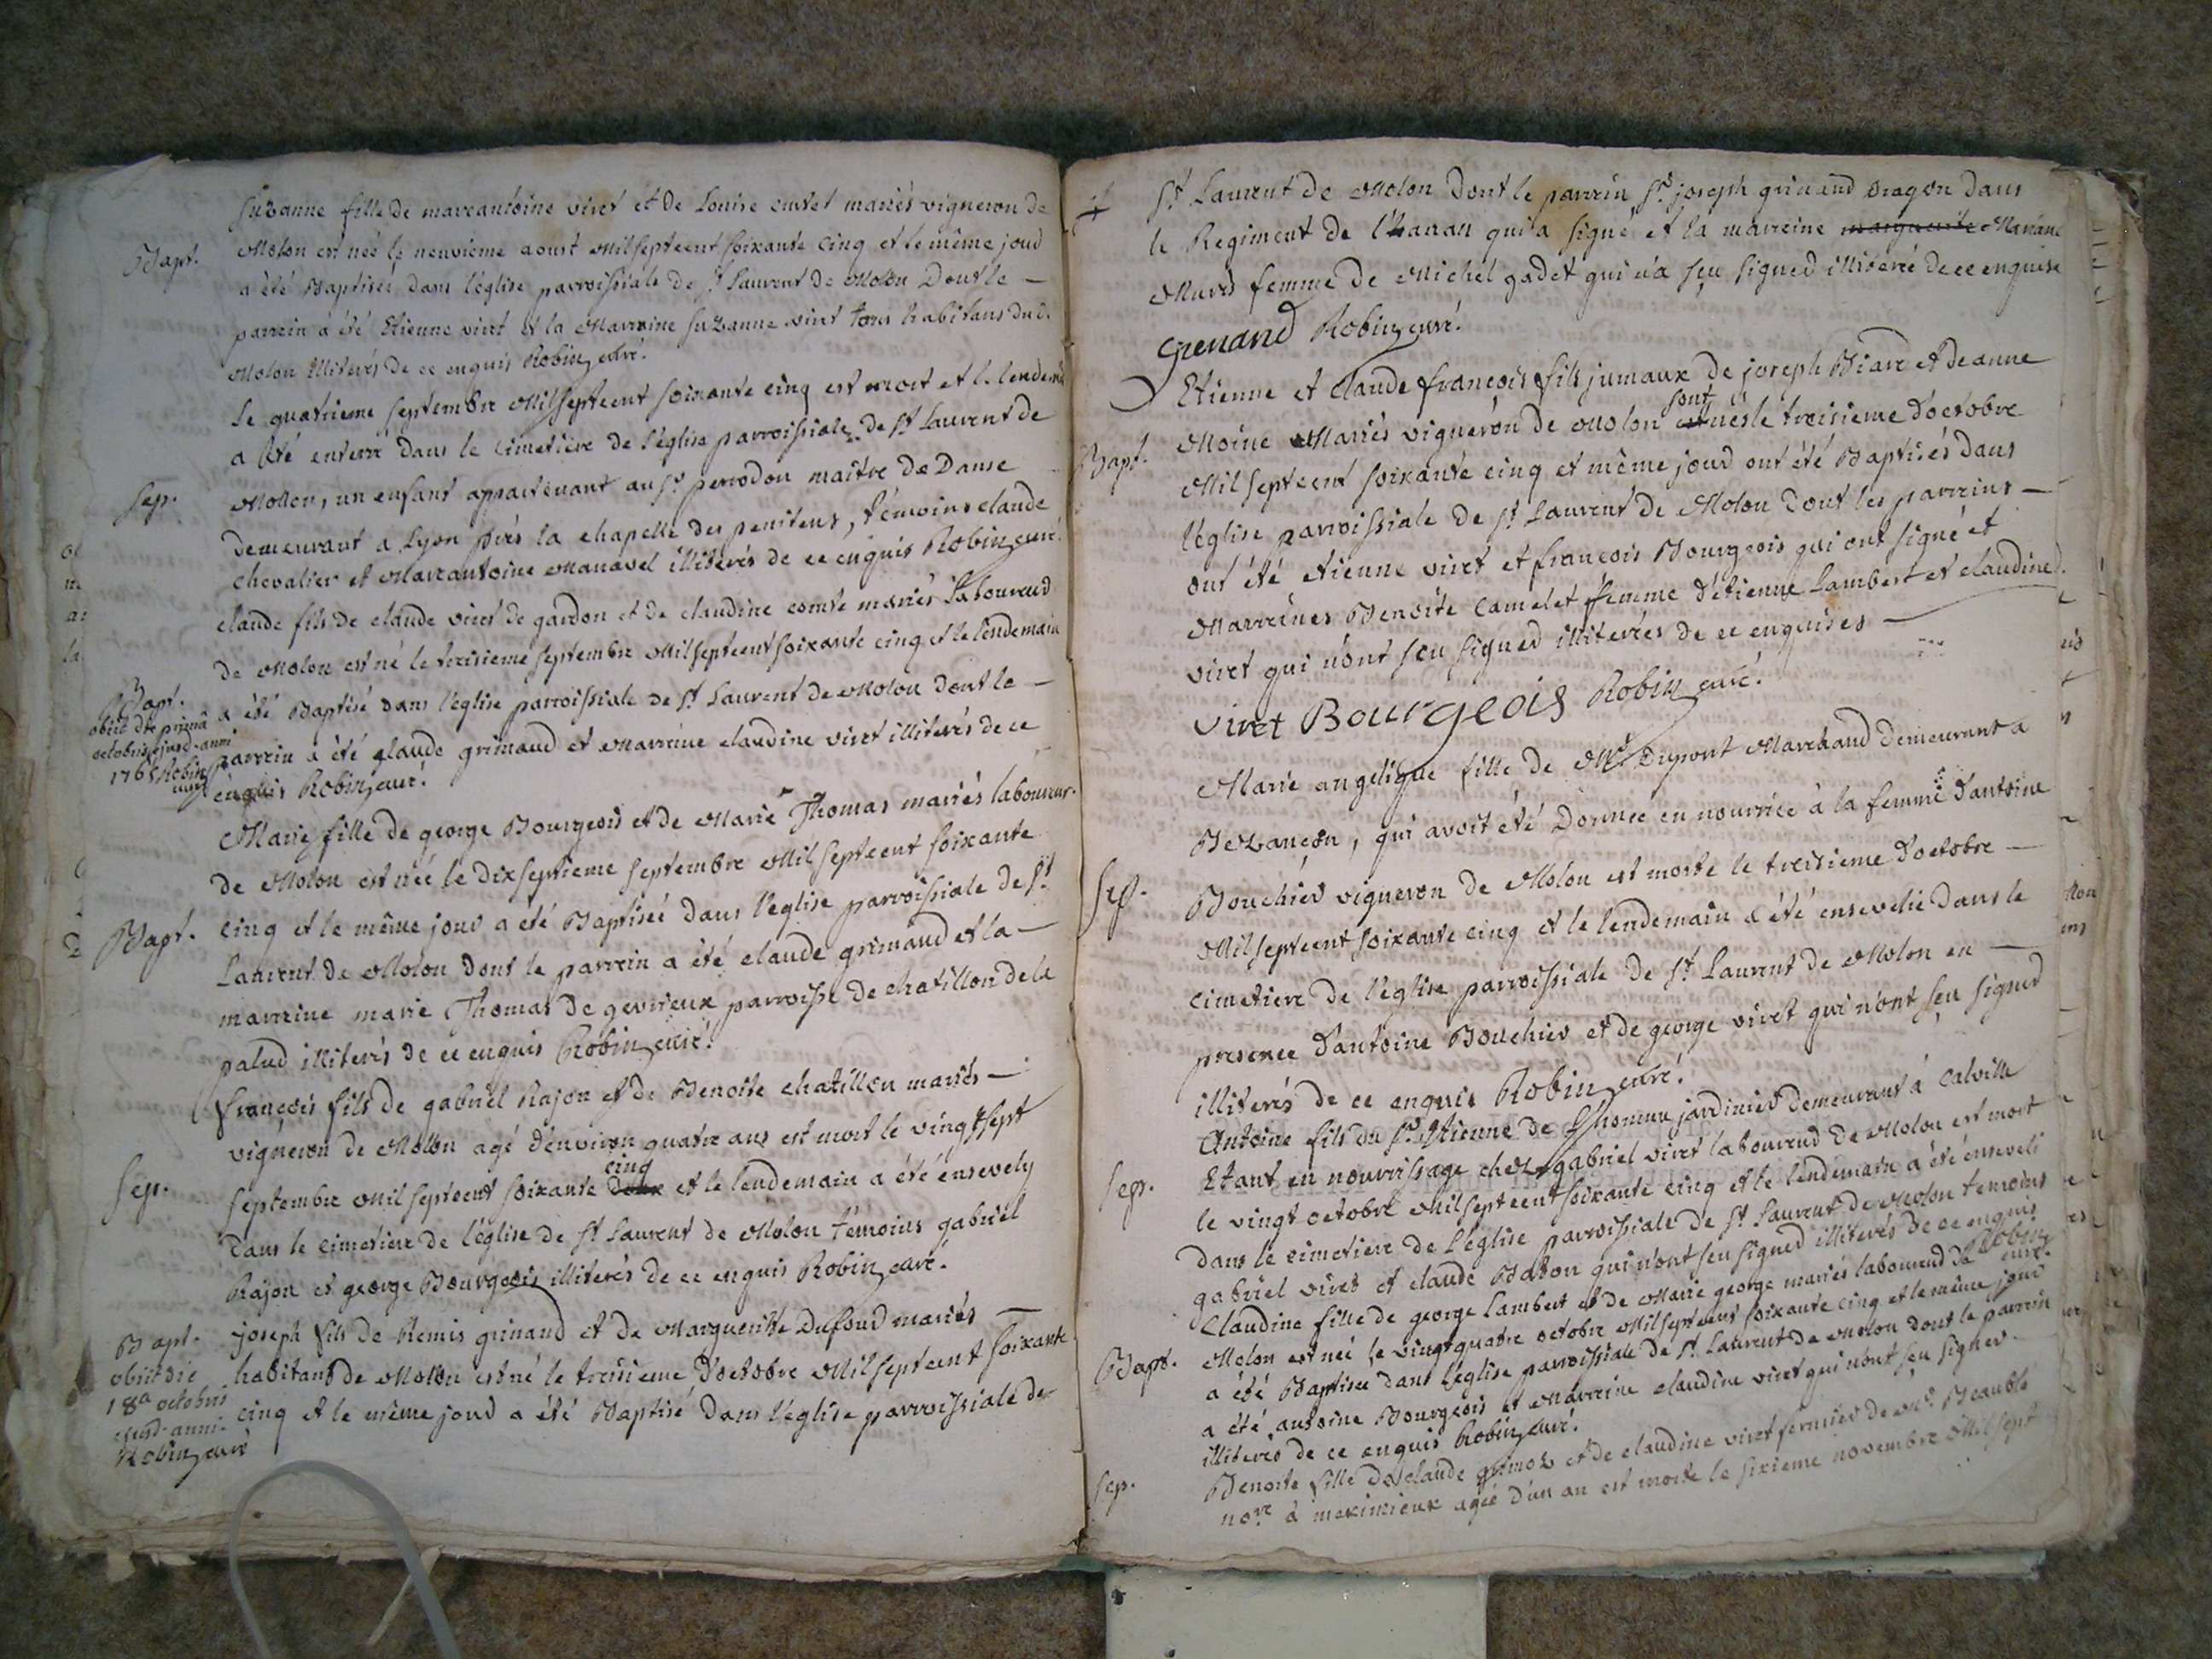 Suzanne fille de marcantoine viret et de Louise mariés vigneron de
Bapt. Molon est née le neuvieme aoust Milsepteent soixante cinq et le même jour
a été Baptiseé dans l'église parroissiale de St Laurent de Molon Dont le —
parrein a été Etienne viret et la Marreine Suzanne viret tous habitans dud.
Molon illiterés de ce enquis Robin curé.
Le quatrieme septembre Milseptcent soixante cinq est mort et le lendemain
a été enterré dans le cimetiére de l'église parroissiale de St Laurent de
Sep. Mollon, un enfant appartenant au Sr perrodon maitre de Danse
demeurant a Lyon près la chapelle des penitens, témoins claude
chevalier et Marcantoine Manavel illiterés de ce enquis Robin curé.
claude fils de claude viret de gardon et de claudine comte mariés Laboureur
de Molon est né le treisieme septembre Milseptcent soixante cinq et le lendemain
Bapt. a été Baptisé dans l'église parroissiale de St Laurent de Molon dont le —
obiit die primâ
octobris ejusd. anni
1765 Robin
curé
parrein a été claude grimaud et Marreine claudine viret illiterés de ce
enquis Robin curé.
Marie fille de george Bourgeois et de Marie Thomas mariés laboureur
de Molon est née le dixseptieme septembre Milseptcent soixante
Bapt. cinq et le même jour a été Baptiseé dans l'eglise parroissiale de St
Laurent de Molon dont le parrein a été claude grimaud et la —
marreine marie Thomas de gevrieux parroisse de chatillon de la
palud illiterés de ce enquis Robin curé.
françois fils de gabriel Rajon et de Benoite chatillon mariés —
vigneron de Molon agé d'environ quatre ans est mort le vingt sept
Sep. septembre Milseptcent soixante deux cinq et le lendemain a été ensevely
dans le cimetiere de l'église de St Laurent de Molon témoins gabriel
Rajon et george Bourgeois illiterés de ce enquis Robin curé.
Bapt. joseph fils de Remis grinand et de Marguerite Dufour mariés —
obiit die
18a octobris
ejusd. anni.
Robin curé
habitans de Molon est né le treisieme d'octobre Milseptcent soixante
cinq et le même jour a été Baptisé dans l'église parroissiale de
St Laurent de Molon dont le parrein Sr joseph grinand Dragon dans
le Regiment de qui a signé et la marreine marguerite Mariane
femme de Michel gadet qui n'a seu signer illiterée de ce enquise
Grenand Robin curé.
Etienne et claude françois fils jumaux de joseph Biard et de anne
Bapt. Moine Mariés vigneron de Molon est sont nés le treisieme d'octobre
Milseptcent soixante cinq et même jour ont été Baptisés dans
l'église parroissiale de St Laurent de Molon dont les parreins —
ont été etienne viret et françois Bourgeois qui ont signé et
Marreines Benoite Camelet femme d'étienne Lambert et claudine
viret qui n'ont seu signer illiterées de ce enquises —
viret Bourgeois Robin curé.
Marie angelique fille de Mr Dupont Marchand demeurant a
Bezançon, qui avoit été Donnée en nourrice à la femme d'antoine
Sep. Bouchier vigneron de Molon est morte le treisieme d'octobre —
Milseptcent soixante cinq et le lendemain a été ensevelie dans le
cimetiere de l'église parroissiale de St Laurent de Molon en —
presence d'antoine Bouchier et de george viret qui n'ont seu signer
illiterés de ce enquis Robin curé.
Antoine fils du Sr Etienne de Lhomme jardinier demeurant à Calville
Sep. Etant en nourrissage chez gabriel viret laboureur de Molon est mort
le vingt octobre Milseptcent soixante cinq et le lendemain a été enseveli
dans le cimetiere de l'église parroissiale de St Laurent de Molon temoins
gabriel viret et claude qui n'ont seu signer illiterés de ce enquis Robin curé.
Claudine fille de george Lambert et de Marie george mariés laboureur de
Bapt. Molon est née le vingt quatre octobre Milseptcent soixante cinq et le même jour
a été Baptisee dans l'église parroissiale de St Laurent de Molon dont le parrein
a été antoine Bourgeois et Marreine claudine viret qui n'ont seu signer
illiterés de ce enquis Robin curé.
Sep. Benoite fille de claude et de claudine viret fermier de Mr Beauble
nore à meximieux agée d'un an est morte le sixieme novembre Milsept